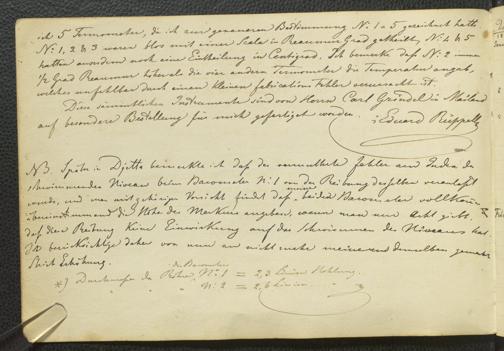 ich 5 Termometer, die ich zur genaueren Bestimmung No: 1 a 5 gezeichnet hatte
No: 1, 2 & 3 waren blos mit einer Scala in Reaumur Grad getheilt, No: 4 & 5
hatten ausserdem noch eine Eintheilung in Centigrad. Ich bemerke daß No: 2 immer
1/2 Grad Reaumur höher als die vier andern Termometer die Temperatur angab,
welches unfehlbar durch einen kleinen fabrications Fehler verursacht ist.
Diese sämmtlichen Instrumente sind von Herrn Carl Gründel in Mailand
auf besondere Bestellung für mich gefertiget worden.
Eduard Rüppell
NB. Später in Djetta bemerkte ich daß der vermuthete Fehler am Ende des
schwimmenden Niveau beim Barometer No: 1 von der Reibung desselben veranlaßt
wurde, und man mit gehöriger Vorsicht findet daß beide Barometer vollkommen
übereinstimmend die Höhe des Merkurs angeben, wenn man nur acht gibt,
daß diese Reibung keine Einwirkung auf das Schwimmen des Niveaus hat
Ich berücksichtige daher von nun an nicht mehr meine an demselben gemachte
Erhöhung.
*) Durchmesser der Barometer Röhre, No: 1 = 2,3 Linien
No: 2 = 2,6 Linien